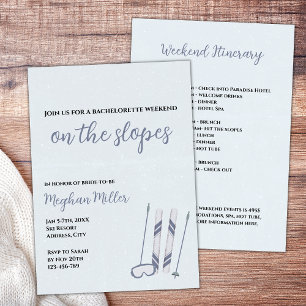 Join us for a bachelorette weekend
on the slopes
in honor of bride-to-be
Meghan Miller
Jan 5-7th, 20XX
Ski Resort
Address, City
RSVP to Sarah
by Nov 20th
123-456-789
Weekend Itinerary
- Check into Paradisa Hotel
- Welcome drinks
- Dinner
- Hotel Spa
- Brunch
- Hit the slopes
- Lunch
- Dinner
- Hot tub
- Brunch
- Check out
Weekend events is 495$
odations, spa, hot tub.